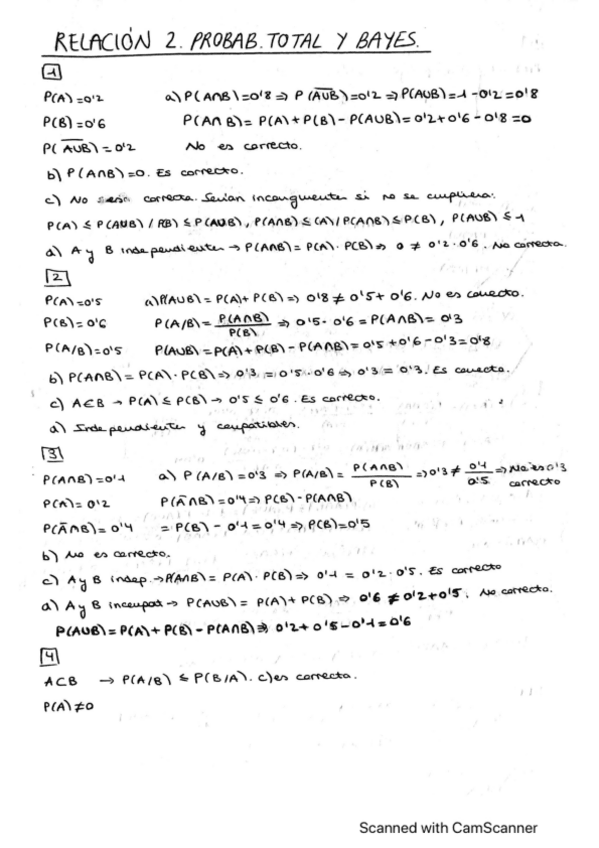 RELACIÓN 2. PROBAB. TOTAL Y BAYES.
1
P(A)=0'2 a) P(A∩B)=0'8 ⇒ P(A̅U̅B̅)=0'2 ⇒ P(AUB)=1-0'2=0'8
P(B)=0'6 P(A∩B)= P(A)+P(B)-P(AUB)=0'2+0'6-0'8=0
P(A̅U̅B̅)=0'2 No es correcto.
b) P(A∩B)=0. Es correcto.
c) No correcta. Serían incongruentes si no se cumpliera:
P(A) ≤ P(AUB) / P(B) ≤ P(AUB), P(A∩B) ≤ (A) / P(A∩B) ≤ P(B), P(AUB) ≤ 1
d) A y B independientes → P(A∩B)= P(A)·P(B) ⇒ 0 ≠ 0'2·0'6. No correcta.
2
P(A)=0'5 a) P(AUB)= P(A)+P(B) ⇒ 0'8 ≠ 0'5+0'6. No es correcto.
P(B)=0'6 P(A/B)= P(A∩B)/P(B) ⇒ 0'5·0'6=P(A∩B)=0'3
P(A/B)=0'5 P(AUB)=P(A)+P(B)-P(A∩B)=0'5+0'6-0'3=0'8
b) P(A∩B)=P(A)·P(B) ⇒ 0'3=0'5·0'6 ⇒ 0'3=0'3. Es correcto.
c) A∈B → P(A) ≤ P(B) → 0'5 ≤ 0'6. Es correcto.
d) Independientes y compatibles.
3
P(A∩B)=0'1 a) P(A/B)=0'3 ⇒ P(A/B)= P(A∩B)/P(B) ⇒ 0'3 ≠ 0'1/0'5 ⇒ No es 0'3 correcto
P(A)=0'2 P(A̅∩B)=0'4 ⇒ P(B)-P(A∩B)
P(A̅∩B)=0'4 = P(B)-0'1=0'4 ⇒ P(B)=0'5
b) No es correcto.
c) A y B indep. → P(A∩B)= P(A)·P(B) ⇒ 0'1=0'2·0'5. Es correcto
d) A y B incompat → P(AUB)= P(A)+P(B) ⇒ 0'6 ≠ 0'2+0'5. No correcto.
P(AUB)=P(A)+P(B)-P(A∩B) ⇒ 0'2+0'5-0'1=0'6
4
A⊂B → P(A/B) ≤ P(B/A). c) es correcta.
P(A)≠0
Scanned with CamScanner